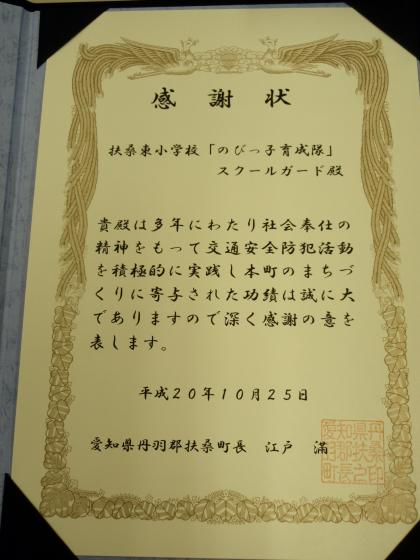 感謝状
扶桑東小学校「のびっ子育成隊」
スクールガード殿
貴殿は多年にわたり社会奉仕の
精神をもって交通安全防犯活動
を積極的に実践し本町のまちづ
くりに寄与された功績は誠に大
でありますので深く感謝の意を
表します。
平成20年10月25日
愛知県丹羽郡扶桑町長 江戸 満
愛知県丹
羽郡扶桑
町長之印